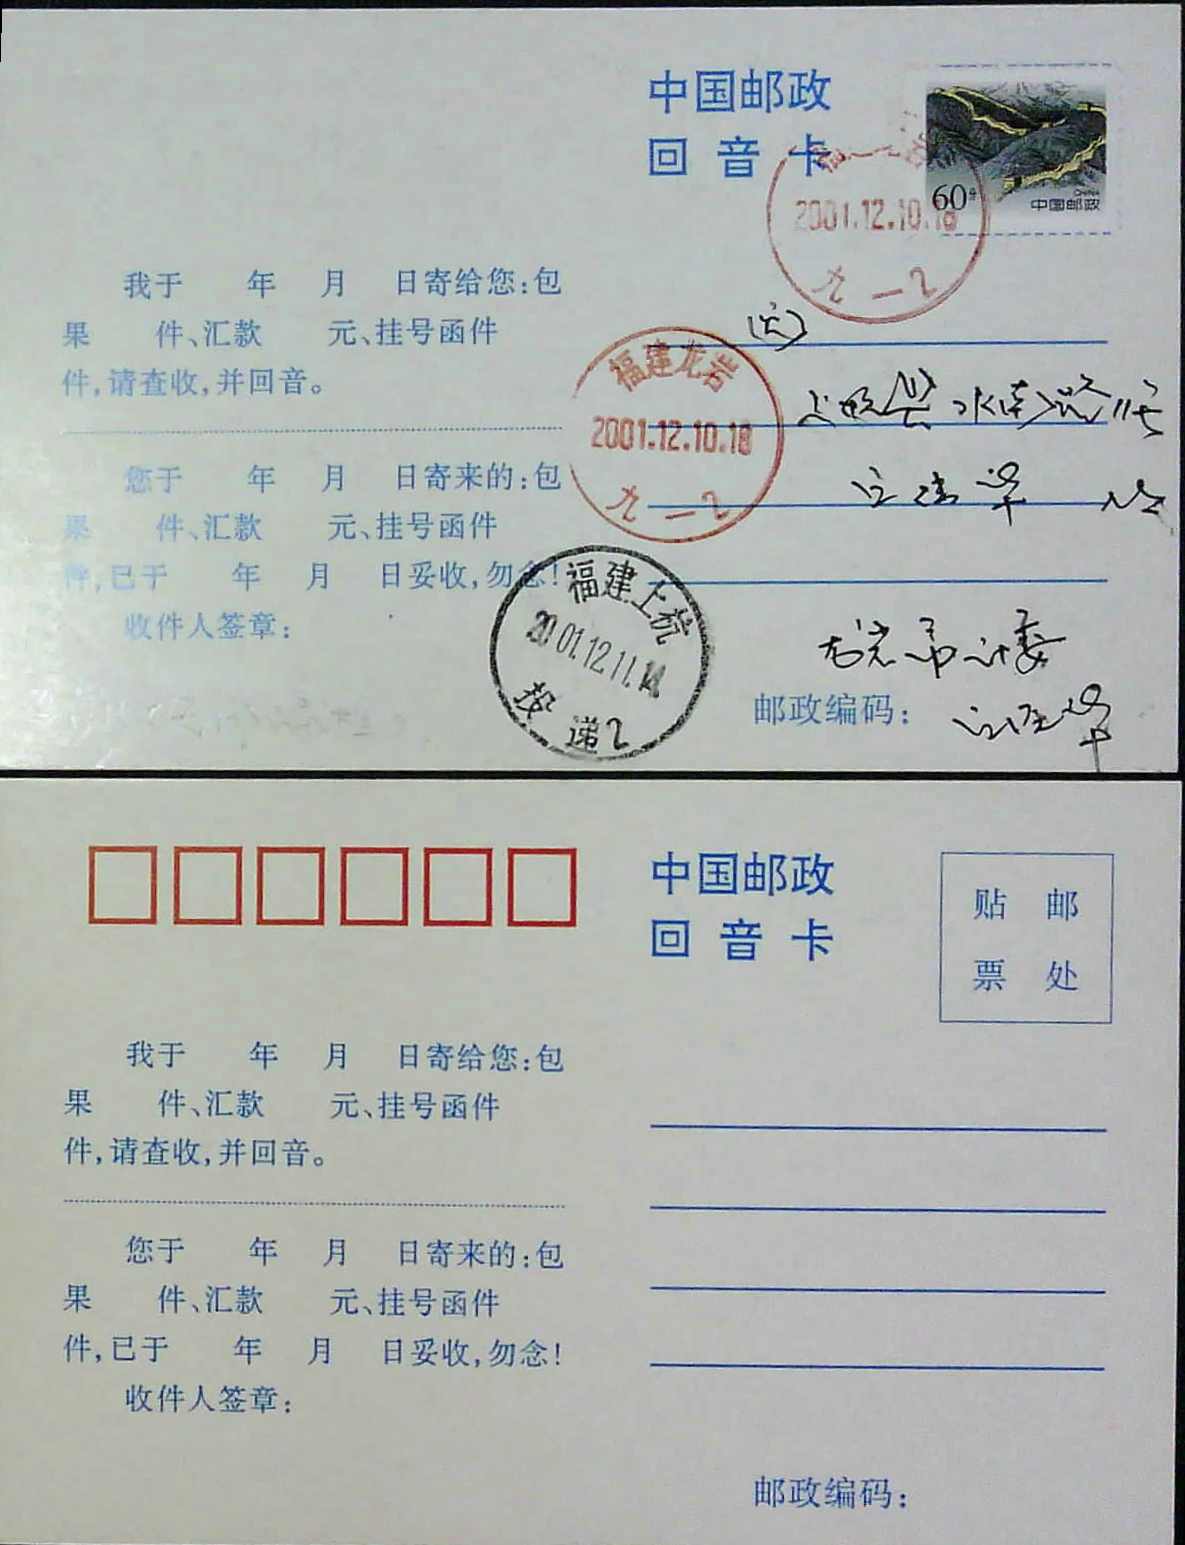 中国邮政
回音卡
60分
CHINA
中国邮政
2001.12.10.18
九一2
我于 年 月 日寄给您:包
果 件、汇款 元、挂号函件
件,请查收,并回音。
您于 年 月 日寄来的:包
果 件、汇款 元、挂号函件
件,已于 年 月 日妥收,勿念!
收件人签章:
福建龙岩
2001.12.10.18
九一2
上杭县水南路
福建上杭
2001.12.11.14
投递2
龙岩市计委
邮政编码:
中国邮政
回音卡
贴邮
票处
我于 年 月 日寄给您:包
果 件、汇款 元、挂号函件
件,请查收,并回音。
您于 年 月 日寄来的:包
果 件、汇款 元、挂号函件
件,已于 年 月 日妥收,勿念!
收件人签章:
邮政编码: